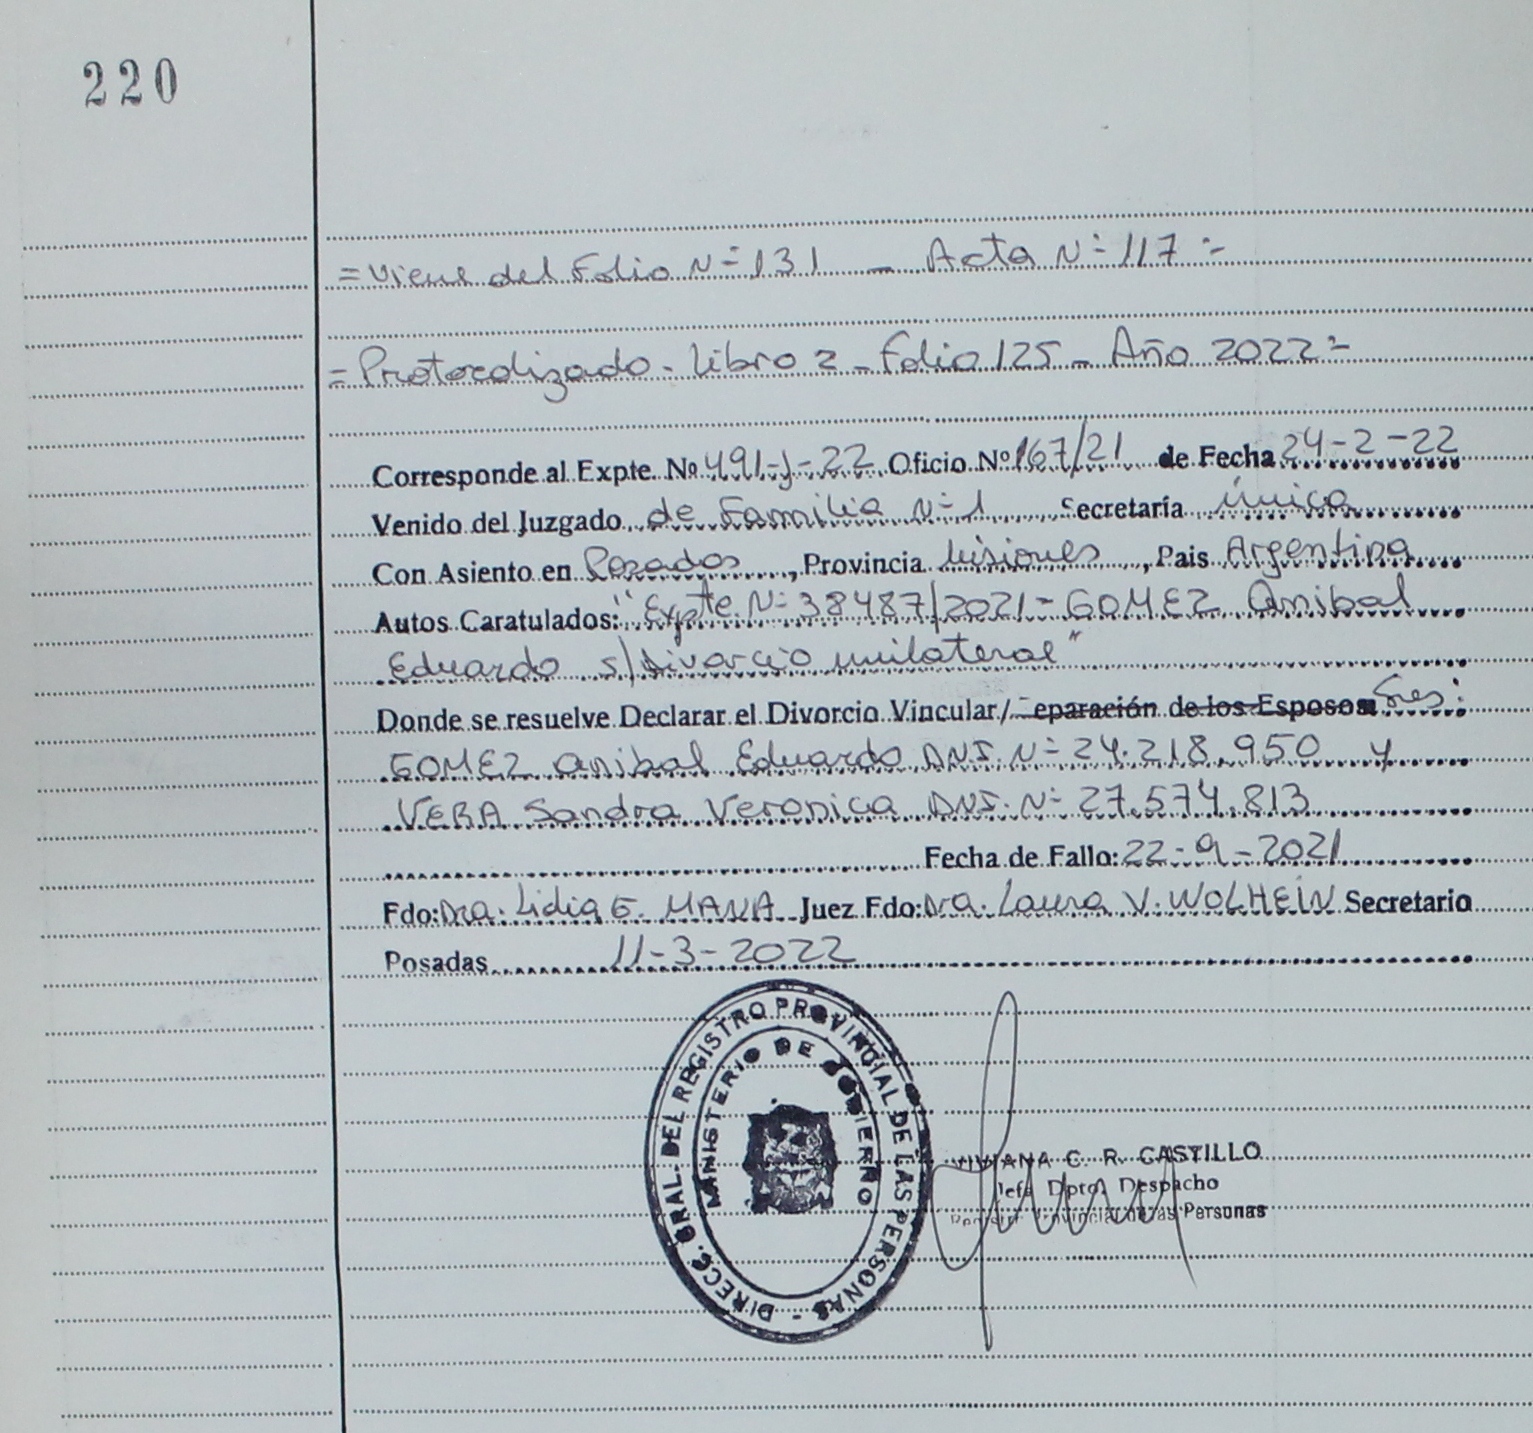 220
=Viene del Folio Nº 131 - Acta Nº 117=-
=Protocolizado - Libro 2 - Folio 125 - Año 2022=-
Corresponde al Expte. Nº 491-J-22 Oficio Nº 167/21 de Fecha 24-2-22
Venido del Juzgado de Familia Nº 1 Secretaría Única
Con Asiento en Posadas, Provincia Misiones, Pais Argentina
Autos Caratulados: "Expte Nº 38487/2021 - GOMEZ Anibal
Eduardo s/Divorcio unilateral"
Donde se resuelve Declarar el Divorcio Vincular/ eparación de los Esposos Sres:
GOMEZ Anibal Eduardo DNI. Nº 24.218.950 y
VERA Sandra Veronica DNI. Nº 27.574.813
Fecha de Fallo: 22-9-2021
Fdo: Dra. Lidia E. MANA Juez Fdo: Dra. Laura V. WOLHEIN Secretario
Posadas 11-3-2022
DIRECC. GRAL. DEL REGISTRO PROVINCIAL DE LAS PERSONAS -
MINISTERIO DE GOBIERNO
VIVIANA C. R. CASTILLO
Jefa Dpto. Despacho
Registro Provincial de las Personas